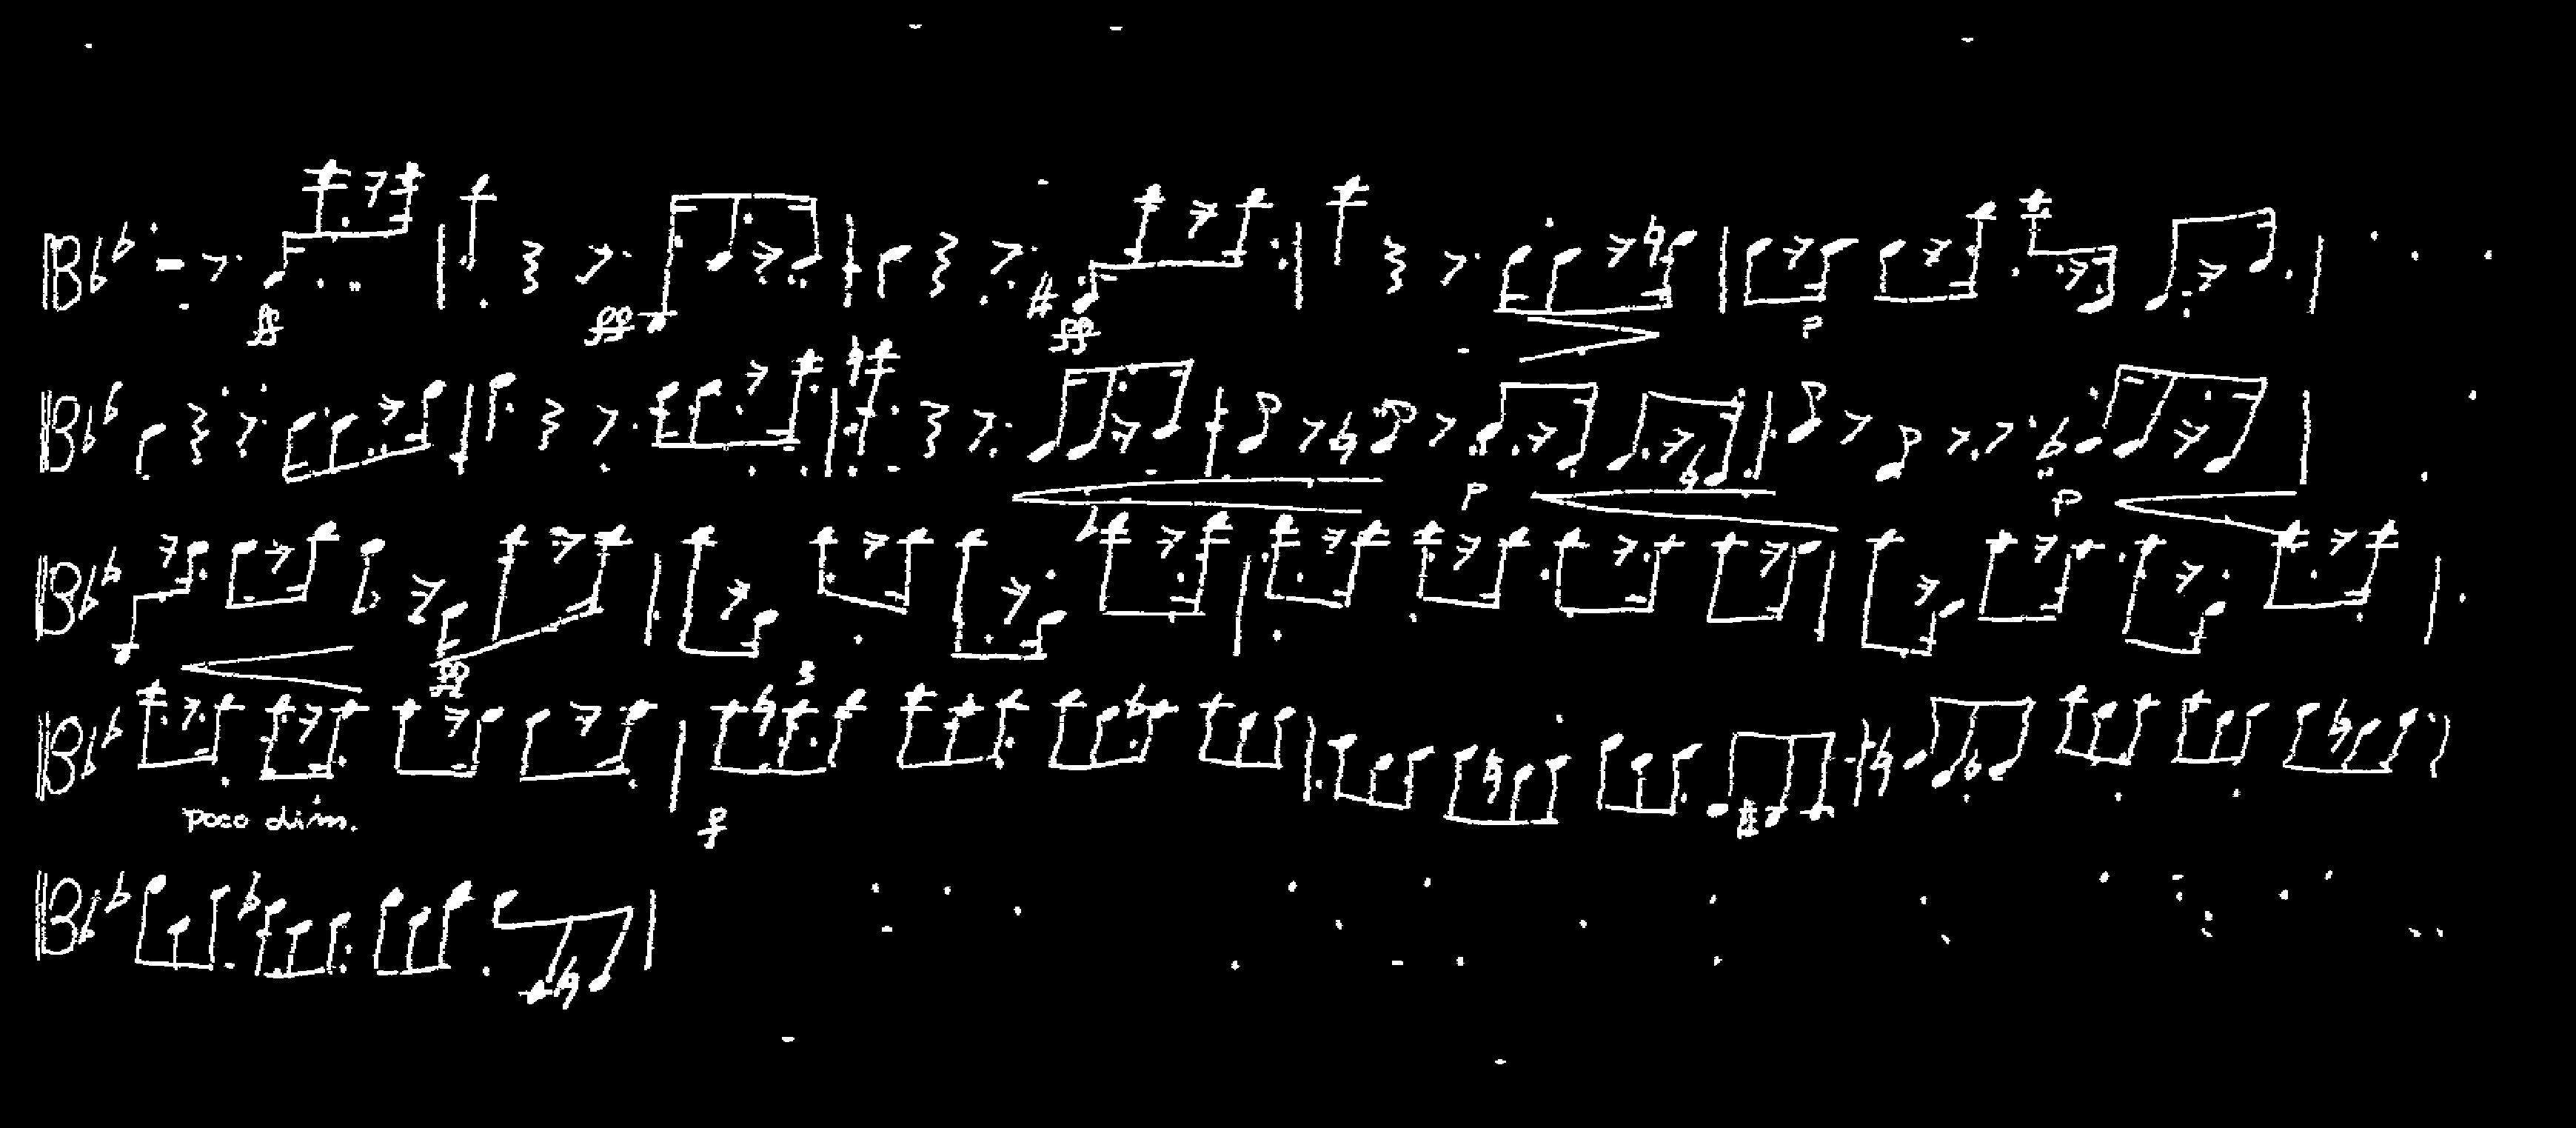 ff ff ff p
p p
ff 3
poco dim. f